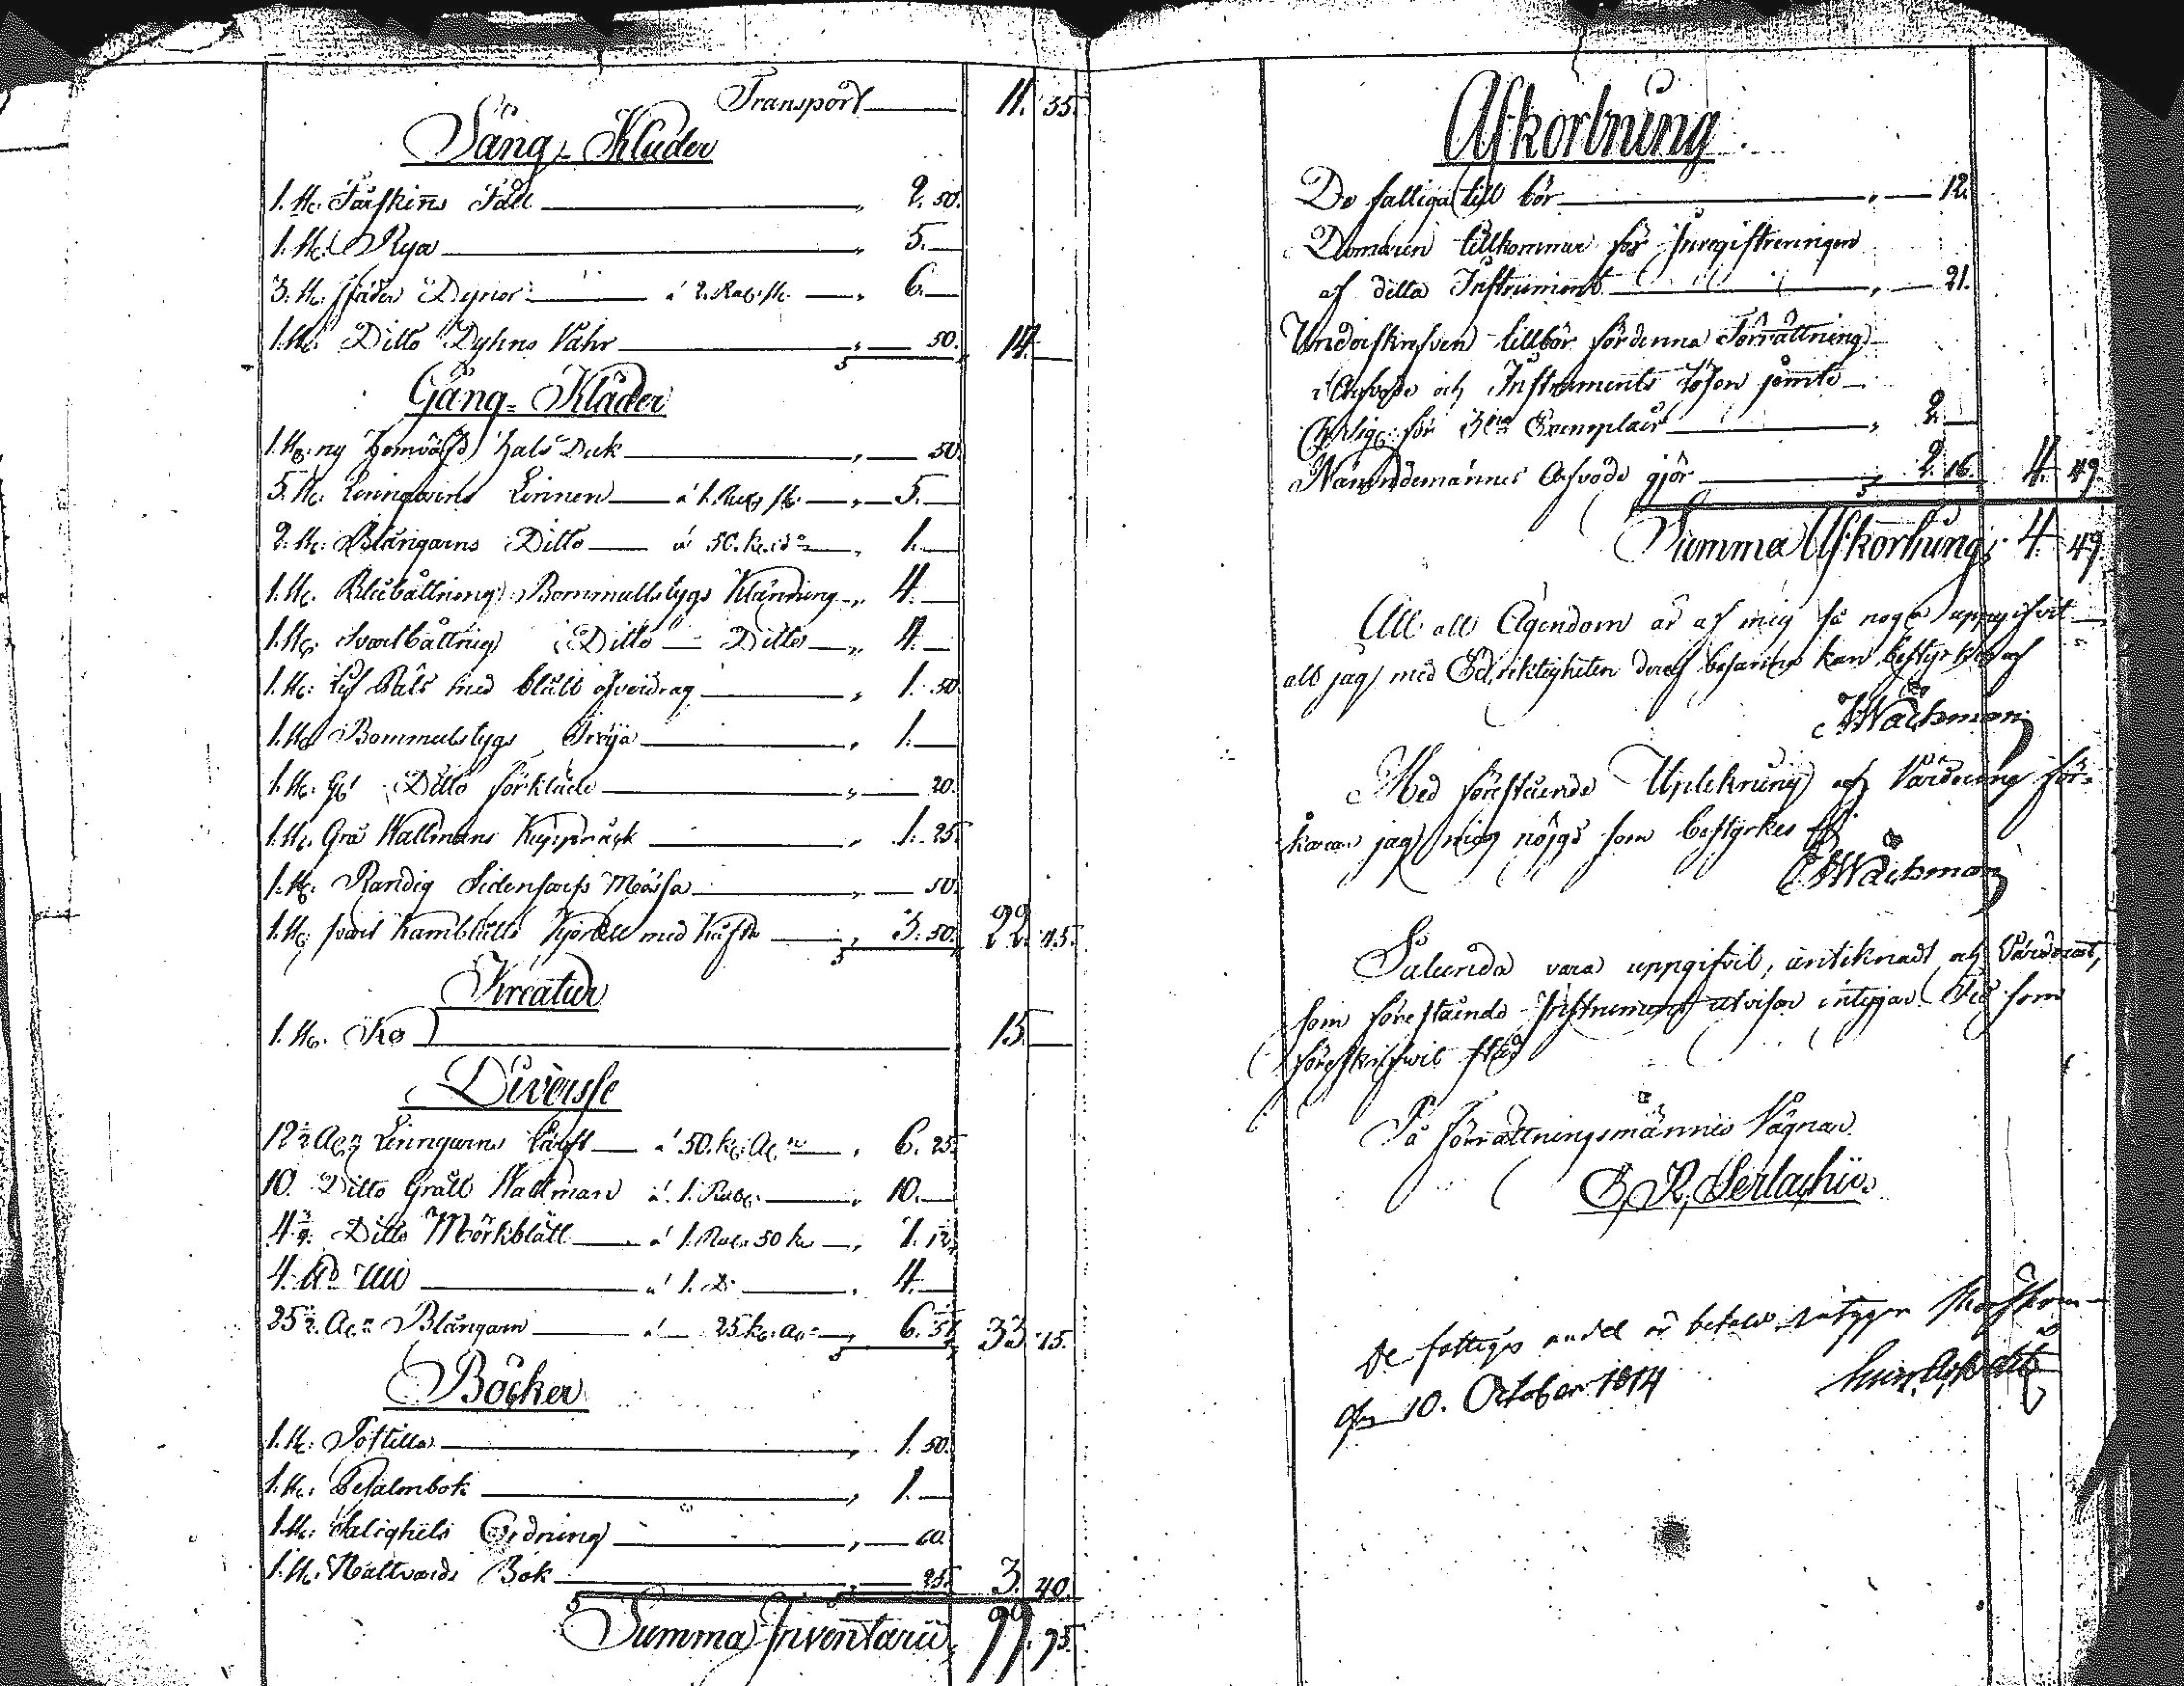 Transport 11. 35.
Säng-Kläder
1. st. Fårskins Fäll " 2. 50.
1. st. Rya " 5.
3. st. fjäder Dÿnor á 2. Rub. st. " 6.
1. st. Ditto Dyhns Vahr " 50. 14.
Gång-Kläder
1. st. ny hemväfd hals Duk " 50.
5. st. Linngarns Linnen á 1. Rub. st. " 5.
2. st. Blångarns Ditto á 50. k. " 1.
1. st. Blåbåttning Bommullstygs Klädning " 4.
1. st. svartbåttnig Ditto Ditto " 4.
1. st. Päls med blått öfverdrag " 1. 50.
1. st. Bommulstygs Tröÿa " 1.
1. st. Ditto förkläde " 20.
1. st. Grå Wallmans " 1. 25.
1. st. Randig Sidensars Mössa " 50.
1. st. svart Kamblotts Kjortel med " 3. 50. 22. 45.
Kreatur
1. st. Ko 15.
Diversse
12½ Aln Linngarns Lärft á 50. k. Aln " 6. 25.
10. Ditto Grått Wallman á 1. Rub. " 10.
4¾ Ditto Mörkblått á 1. Rub. 50 k. " 7. 12½
4. Ull á 1. D. " 4.
25½ Aln Blångarn á 25 k. Aln " 6. 37½ 33. 75.
Böcker
1. st. Postilla " 1. 50.
1. st. Psalmbok " 1.
1. st. Salighets Ordning " 60.
1. st. Nattvards Bok " 25. 3. 40.
Summa Inventarii 99. 95.
Afkortning.
De fattiga till bör " 12.
Domaren tillkommer för Inregistreringen
af detta Instrument " 21.
Underskrefven tillbör för denna Förrättning
i Arfvode och Instruments lösen jämte
för Exemplair " 2.
Nämndemännes Arfvode gjör " 2. 16. 4. 49.
Summa Afkortning 4. 49.
Att all Ägendom är af mig så noga uppgifvit
att jag med Ed riktigheten deraf besanna kan, bestyrkes af
Wäckman
Med föreståände Uptekning och Värdering för-
klarar jag mig nöjgd som bestyrkes af
Wäckman
Sålunda vara uppgifvit, anteknadt och Värderat,
som föreståände Instrument utvisar intygar. Tid som
föreskrifwit står
På förrättningsmännes Vägnar
G, R, Serlachius
De fattigas andel är betald intygar
den 10. October 1814